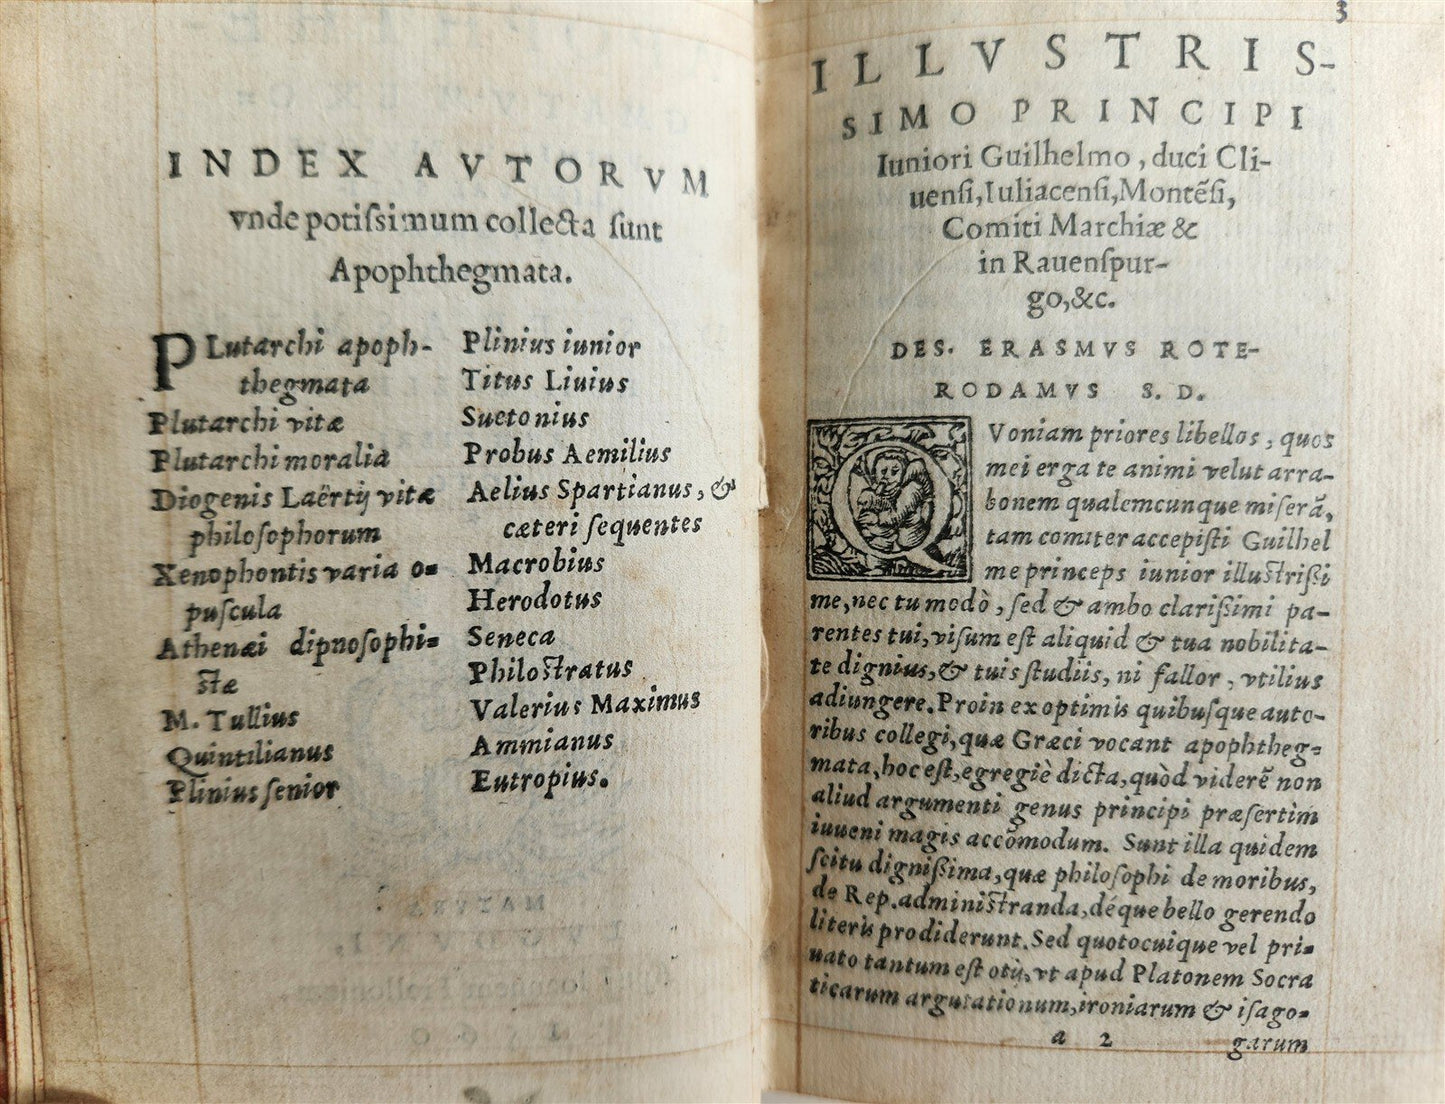 INDEX AVTORVM
vnde potiſsimum collecta ſunt
Apophthegmata.
PLutarchi apoph-
thegmata
Plutarchi vitæ
Plutarchi moralia
Diogenis Laërtij vitæ
philoſophorum
Xenophontis varia o=
puſcula
Athenæi dipnoſophi=
ſtæ
M. Tullius
Quintilianus
Plinius ſenior
Plinius iunior
Titus Liuius
Suetonius
Probus Aemilius
Aelius Spartianus, &
cæteri ſequentes
Macrobius
Herodotus
Seneca
Philoſtratus
Valerius Maximus
Ammianus
Eutropius.
3
ILLVSTRIS-
SIMO PRINCIPI
Iuniori Guilhelmo, duci Cli-
uenſi, Iuliacenſi, Montẽſi,
Comiti Marchiæ &
in Rauenſpur-
go, &c.
DES. ERASMVS ROTE-
RODAMVS S. D.
QVoniam priores libellos, quos
mei erga te animi velut arra-
bonem qualemcunque miſerã,
tam comiter accepiſti Guilhel
me princeps iunior illuſtrißi
me, nec tu modò, ſed & ambo clarißimi pa-
rentes tui, viſum eſt aliquid & tua nobilita-
te dignius, & tuis ſtudiis, ni fallor, vtilius
adiungere. Proin ex optimis quibuſque auto-
ribus collegi, quæ Græci vocant apophtheg=
mata, hoc eſt, egregiè dicta, quòd viderẽ non
aliud argumenti genus principi præſertim
iuueni magis accõmodum. Sunt illa quidem
ſcitu dignißima, quæ philoſophi de moribus,
de Rep. adminiſtranda, déque bello gerendo
literis prodiderunt. Sed quotocuique vel pri=
uato tantum eſt otij, vt apud Platonem Socra
ticarum argutationum, ironiarum & iſago=
a 2
garum